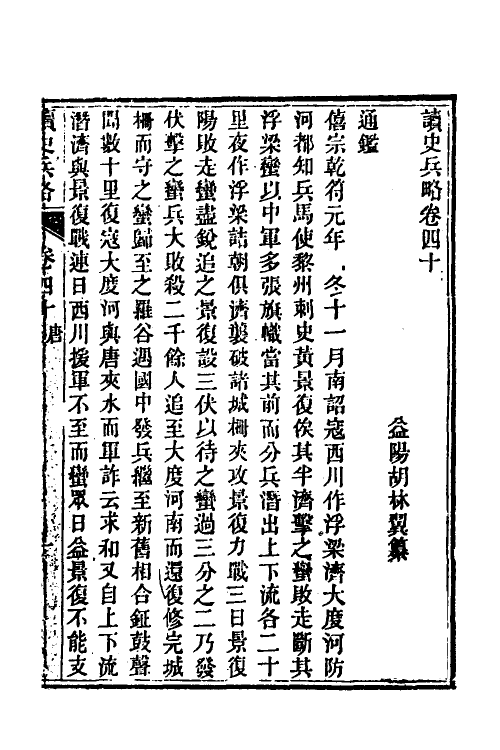 讀史兵略卷四十
益陽胡林翼纂
通鑑
僖宗乾符元年冬十一月南詔寇西川作浮梁濟大度河防
河都知兵馬使黎州刺史黃景復俟其半濟擊之蠻敗走斷其
浮梁蠻以中軍多張旗幟當其前而分兵潛出上下流各二十
里夜作浮梁詰朝俱濟襲破諸城柵夾攻景復力戰三日景復
陽敗走蠻盡銳追之景復設三伏以待之蠻過三分之二乃發
伏擊之蠻兵大敗殺二千餘人追至大度河南而還復修完城
柵而守之蠻歸至之羅谷遇國中發兵繼至新舊相合鉦鼓聲
聞數十里復寇大度河與唐夾水而軍詐云求和又自上下流
潛濟與景復戰連日西川援軍不至而蠻眾日益景復不能支
讀史兵略
卷四十
唐